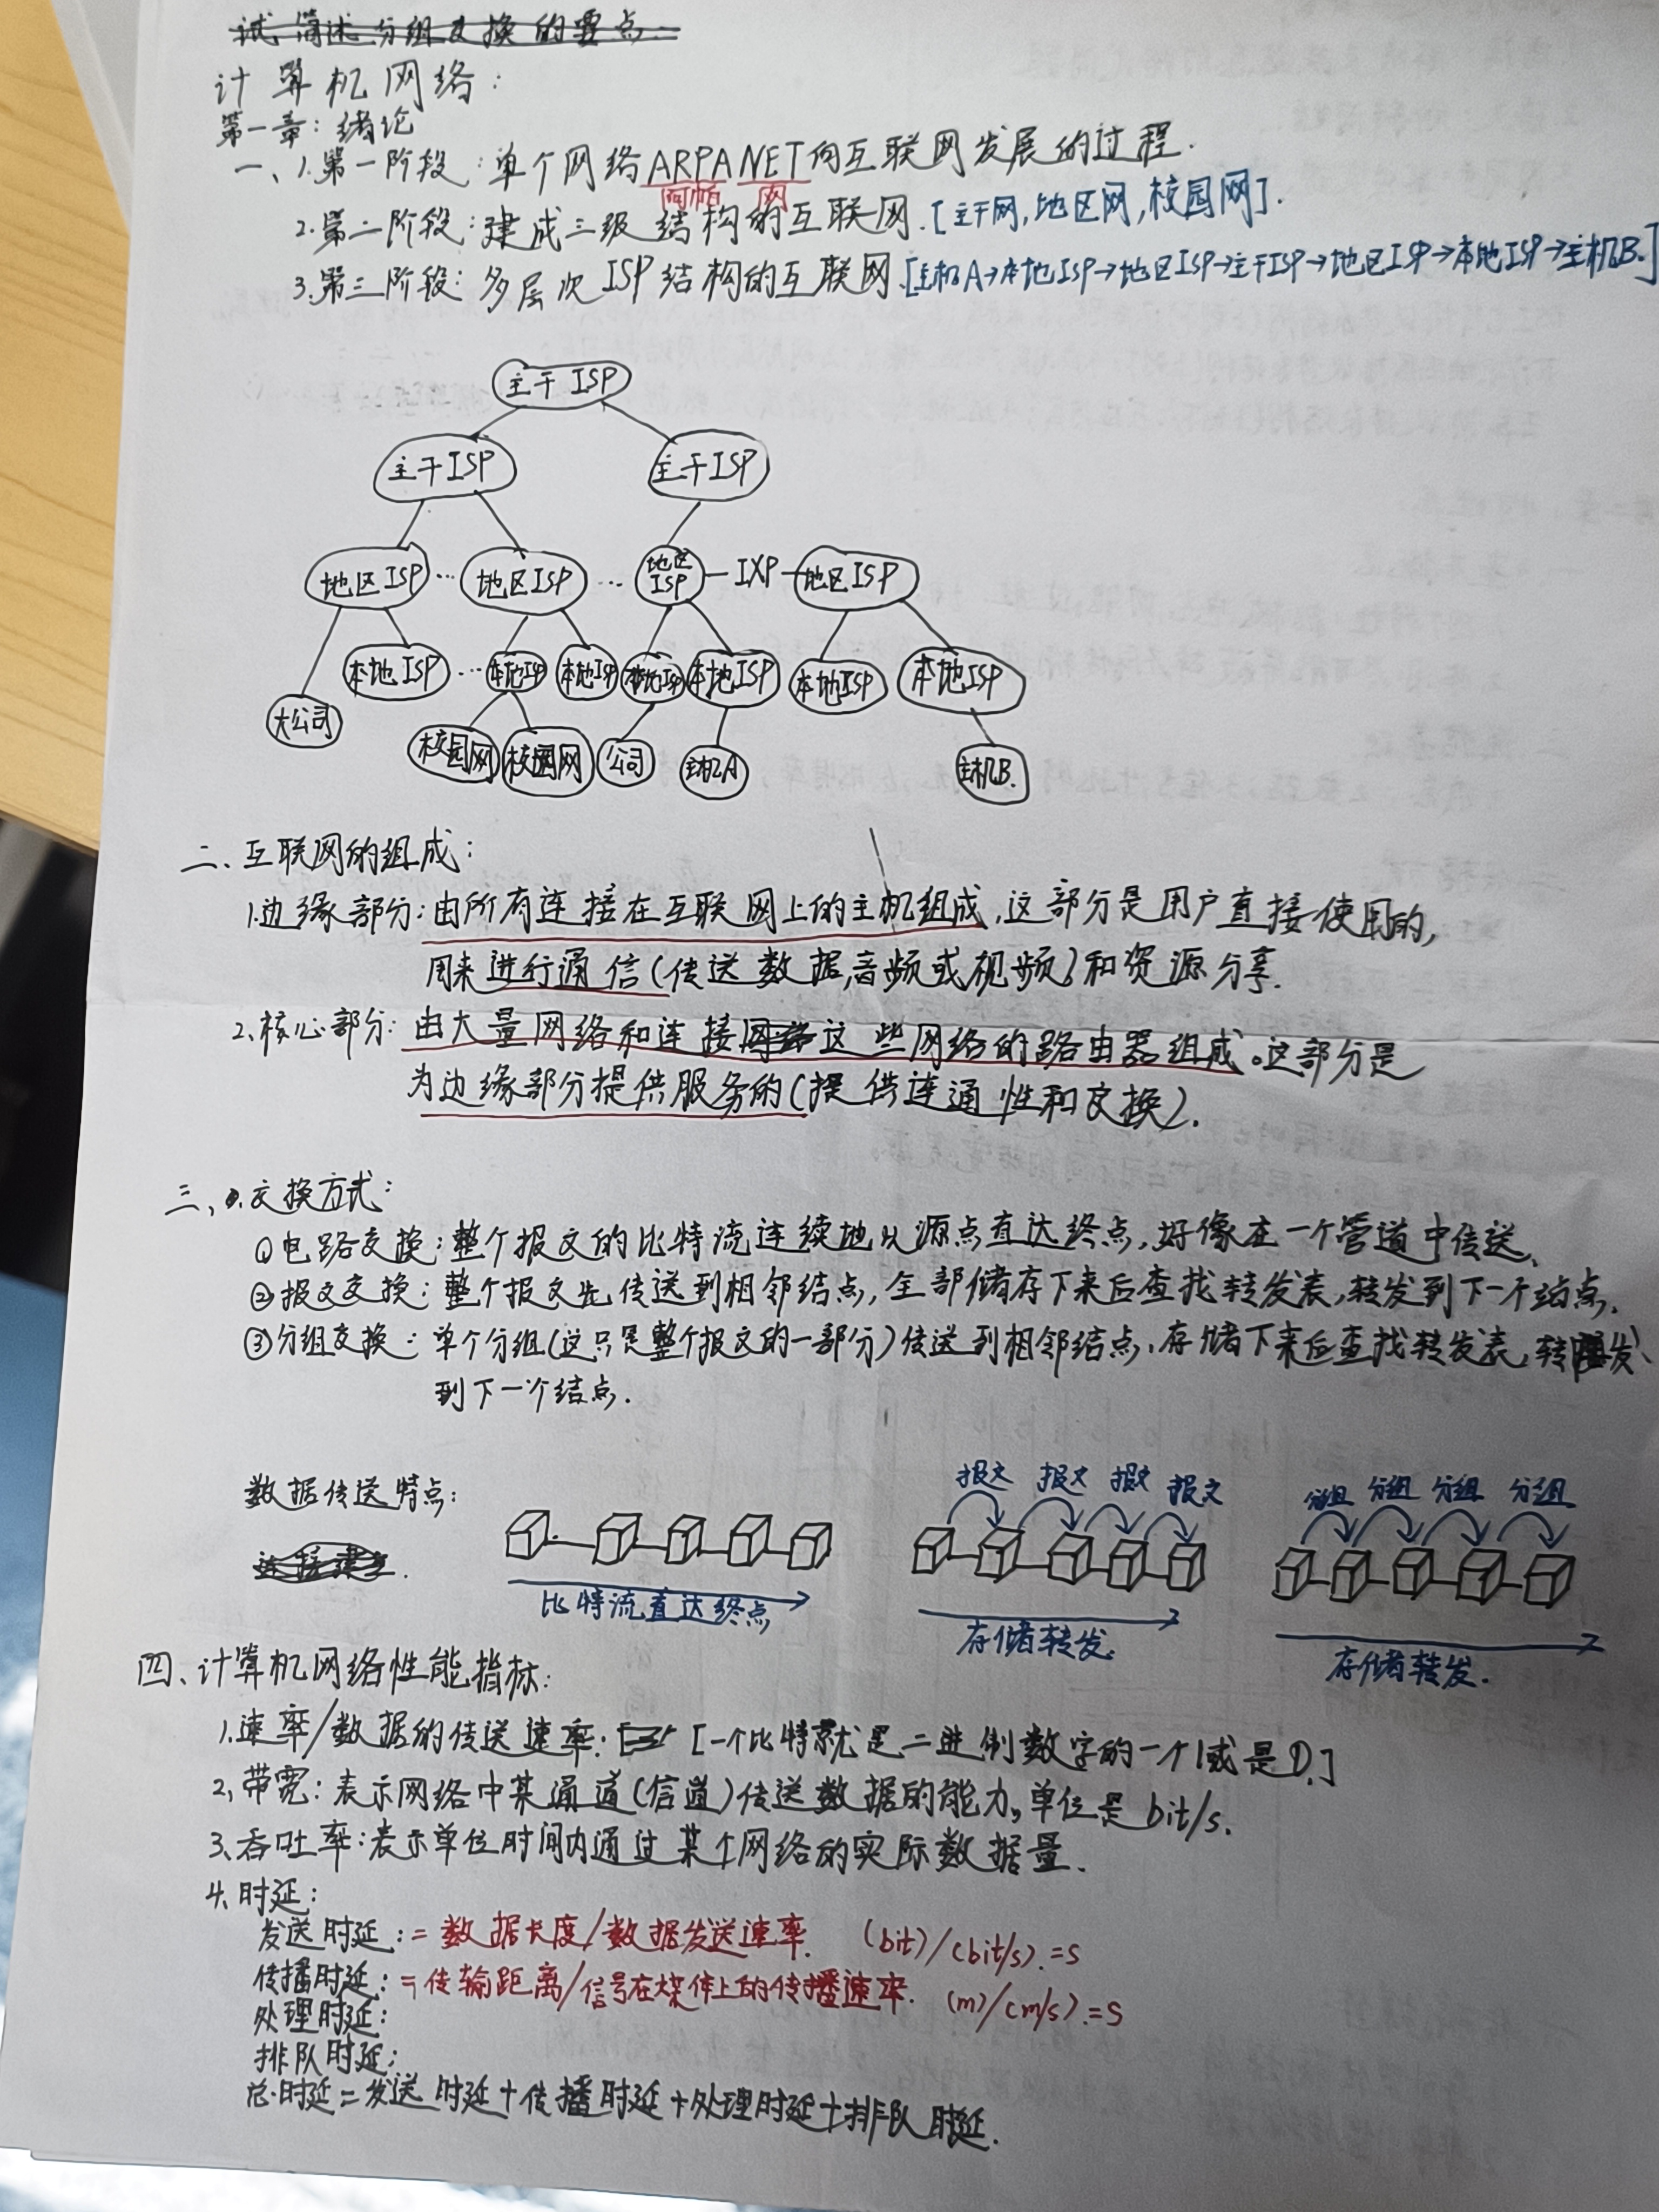 试简述分组交换的要点
计算机网络:
第一章:绪论
一、1.第一阶段:单个网络ARPANET向互联网发展的过程.
阿帕 网
2.第二阶段:建成三级结构的互联网.[主干网,地区网,校园网].
3.第三阶段:多层次ISP结构的互联网.[主机A→本地ISP→地区ISP→主干ISP→地区ISP→本地ISP→主机B.]
主干ISP
主干ISP 主干ISP
地区ISP … 地区ISP … 地区ISP — IXP — 地区ISP
本地ISP … 本地ISP 本地ISP 本地ISP 本地ISP 本地ISP 本地ISP
大公司 校园网 校园网 公司 主机A 主机B.
二、互联网的组成:
1.边缘部分:由所有连接在互联网上的主机组成,这部分是用户直接使用的,
用来进行通信(传送数据,音频或视频)和资源分享.
2.核心部分:由大量网络和连接这些网络的路由器组成。这部分是
为边缘部分提供服务的(提供连通性和交换).
三、交换方式:
①电路交换:整个报文的比特流连续地从源点直达终点,好像在一个管道中传送、
②报文交换:整个报文先传送到相邻结点,全部储存下来后查找转发表,转发到下一个站点.
③分组交换:单个分组(这只是整个报文的一部分)传送到相邻结点,存储下来后查找转发表,转发
到下一个结点.
数据传送特点:
报文 报文 报文 报文
分组 分组 分组 分组
比特流直达终点
存储转发.
存储转发.
四、计算机网络性能指标:
1.速率/数据的传送速率:[一个比特就是二进制数字的一个1或是0.]
2.带宽:表示网络中某通道(信道)传送数据的能力,单位是bit/s.
3.吞吐率:表示单位时间内通过某个网络的实际数据量.
4.时延:
发送时延:=数据长度/数据发送速率. (bit)/(bit/s).=s
传播时延:=传输距离/信号在媒体上的传播速率. (m)/(m/s).=s
处理时延:
排队时延:
总时延=发送时延+传播时延+处理时延+排队时延.